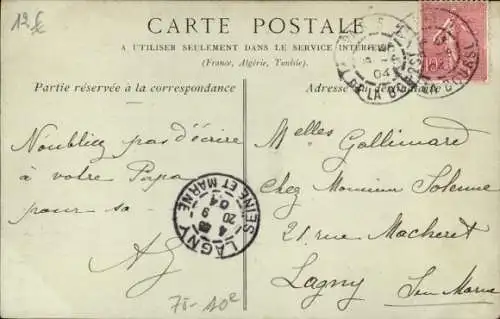 12€
CARTE POSTALE
A UTILISER SEULEMENT DANS LE SERVICE INTÉRIEUR
(France, Algérie, Tunisie).
Partie réservée à la correspondance
Adresse du
N'oubliez pas d'écrire
à votre Papa
pour sa
AG
Melles Gallimard
Chez Monsieur Solenne
21, rue Macheret
Lagny Seine Marne
LAGNY
SEINE ET MARNE
20 9
04
DE LA B
04
75-10e